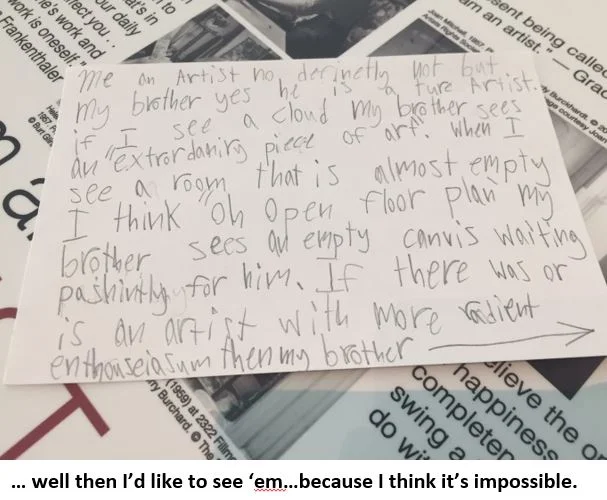 me an Artist no, derinetly not but
my brother yes he is a ture Artist.
if I see a cloud my brother sees
an "extrordanirg piece of art". When I
see a room that is almost empty
I think "oh open floor plan my
brother sees an empty canvis waiting
pashintly for him. If there was or
is an artist with more radient
enthouseiasum then my brother →
nect you.
work is oneself.
ne's work and
Frankenthaler
ur daily
at's in
n to
Joan Mitchell, 1957
Artists Rights Socie
sent being called
am an artist. — Grac
y Burckhardt. ©
ge courtesy Joan
(1959) at 2322 Fillm
ry Burchard. © The
elieve the o
happiness
completen
swing a
do wi
... well then I'd like to see 'em...because I think it's impossible.